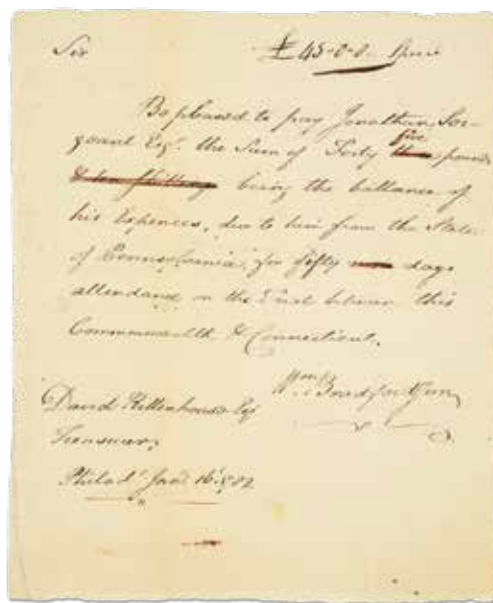 Sir £45-0-0.
Be pleased to pay Jonathan Ser-
geant Esq. the Sum of Forty five pounds
& ten shillings being the ballance of
his Expences, due to him from the State
of Pennsylvania, for fifty days
attendance on the Trial between this
Commonwealth & Connecticut.
Wm. Bradford Jun
David Rittenhouse Esq
Treasurer,
Philad. Jan. 16